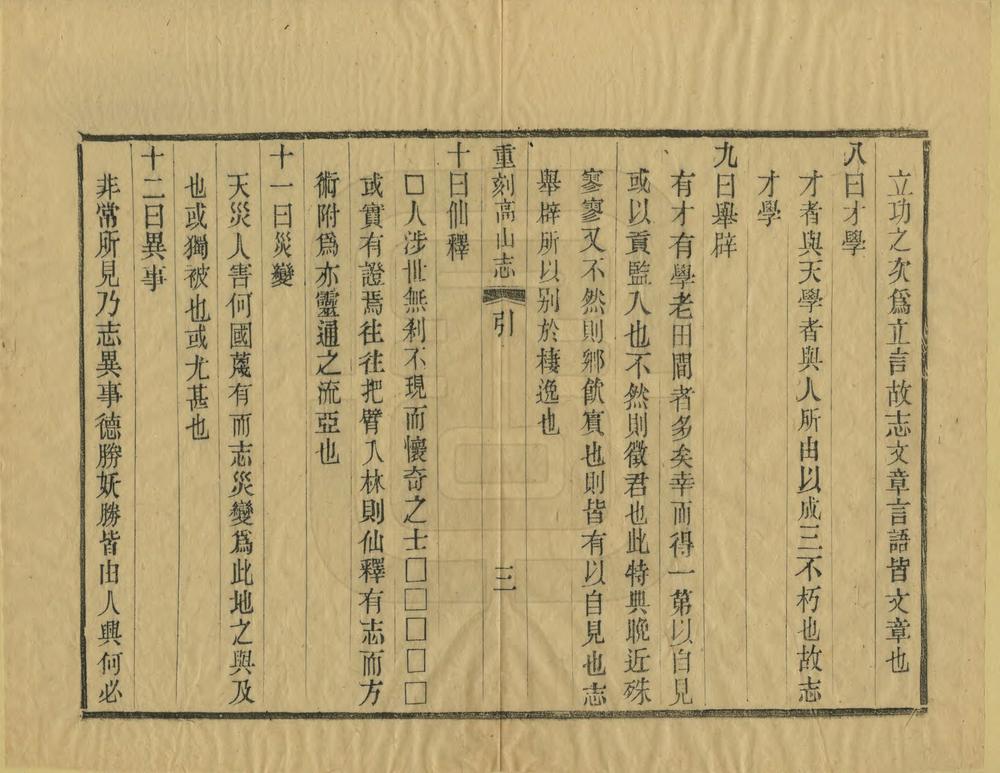 立功之次爲立言故志文章言語皆文章也
八曰才學
才者與天學者與人所由以成三不朽也故志
才學
九曰舉辟
有才有學老田間者多矣幸而得一第以自見
或以貢監入也不然則徵君也此特典晚近殊
寥寥又不然則鄉飮賔也則皆有以自見也志
舉辟所以别於棲逸也
重刻高山志 引 三
十曰仙釋
□人涉世無刹不現而懷奇之士□□□□□
或實有證焉往往把臂入林則仙釋有志而方
術附爲亦靈通之流亞也
十一曰災變
天災人害何國蔑有而志災變爲此地之與及
也或獨被也或尤甚也
十二曰異事
非常所見乃志異事德勝妖勝皆由人興何必